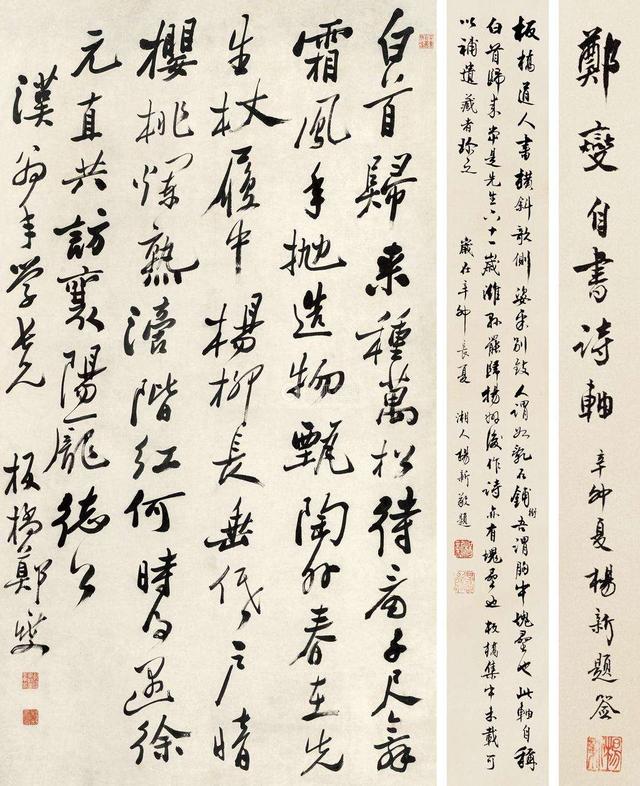 鄭燮自書詩軸 辛卯夏楊新題簽
板橋道人書橫斜欹側姿態別致人謂如亂石鋪街吾謂胸中塊壘也此軸自稱
白首歸來當是先生六十一歲濰縣罷歸揚州後作詩亦有塊壘也板橋集中未載可
以補遺藏者珍之 歲在辛卯長夏 湘人楊新敬題
白首歸來種萬松待看千尺舞
霜風年拋造物甄陶外春在先
生杖履中楊柳長垂低戶暗
櫻桃爛熟滴階紅何時得遇徐
元直共訪襄陽龐德公
漢翁年學老兄 板橋鄭燮